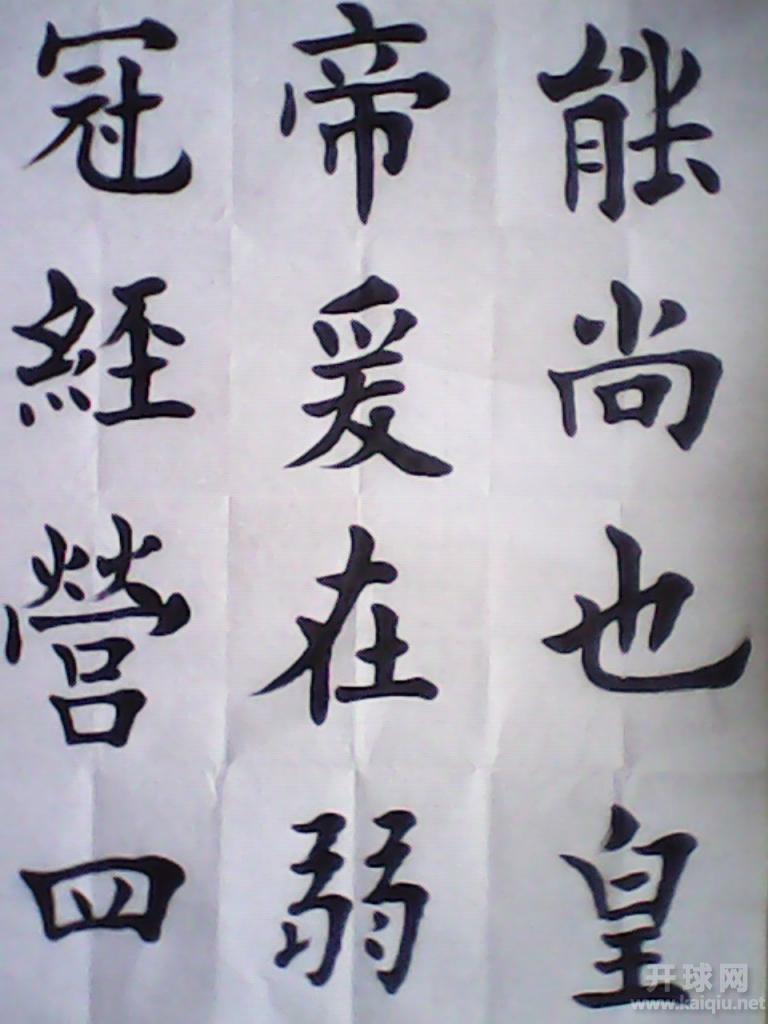 能尚也皇
帝爰在弱
冠經營四
开球网
www.kaiqiu.net